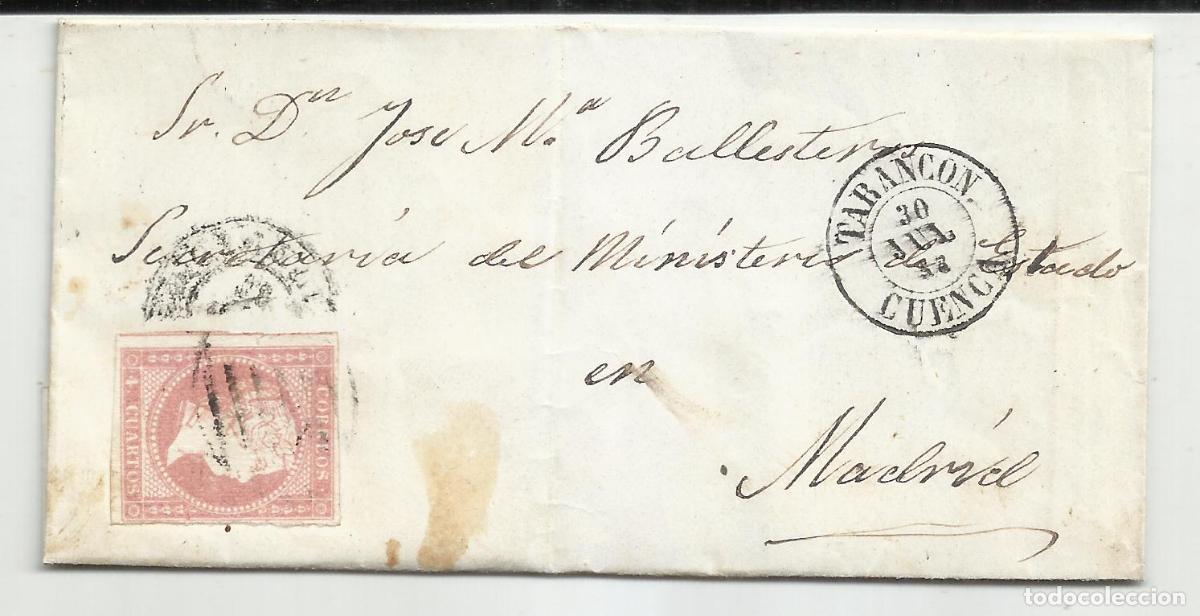 Sr. Dⁿ Jose Mª Ballesteros
Secretaría del Ministerio de Estado
en
Madrid
TARANCON.
30
JUL
CUENCA
CORREOS
4 CUARTOS
todocoleccion